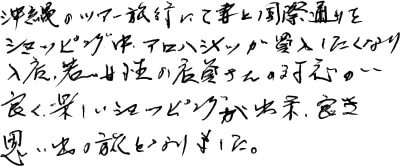 沖縄のツアー旅行にて妻と国際通りを
ショッピング中、アロハシャツが買入したくなり
入店、若い女性の店員さんの対応が一
良く、楽しいショッピングが出来、良き
思い出の旅となりました。